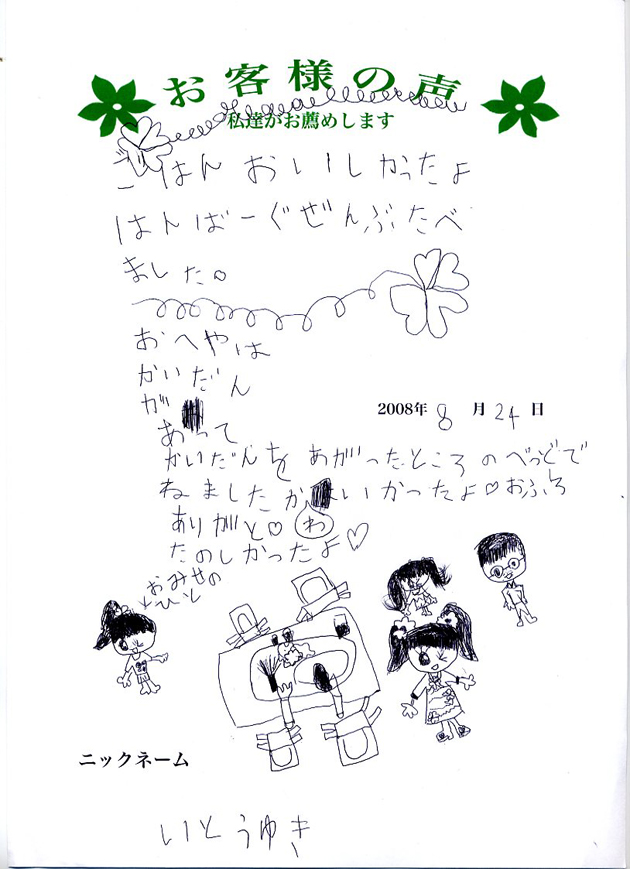 お客様の声
私達がお薦めします
ごはん おいしかったよ
はんばーぐぜんぶたべ
ました。
おへやは
かいだん
が
あって
2008年 8 月 24 日
かいだんを あがったところ のべっどで
ねました か わ いかったよ♡おふろ
ありがと♡
たのしかったよ♡
おみせの
ひと
ニックネーム
いとうゆき